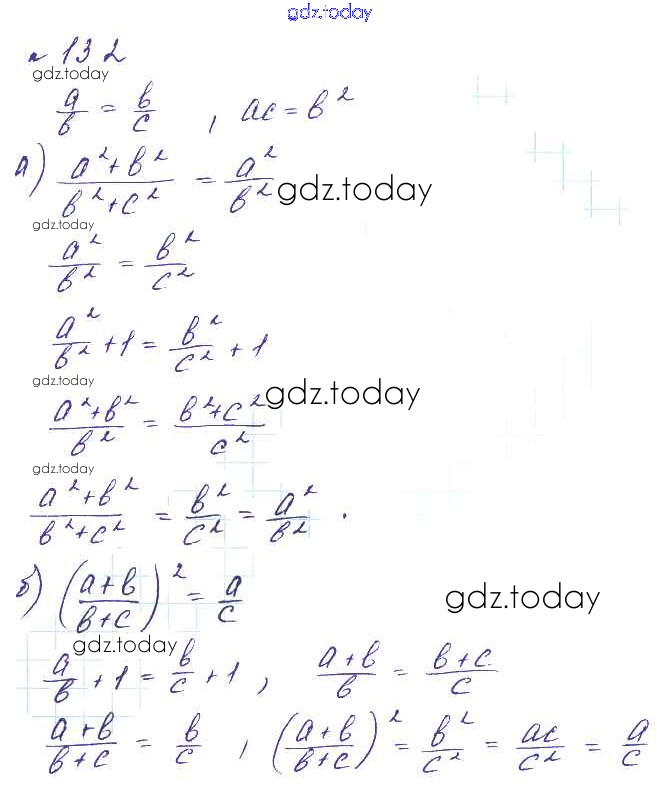 gdz.today
№ 132
gdz.today
a/b = b/c , ac = b²
а) (a²+b²)/(b²+c²) = a²/b² gdz.today
gdz.today
a²/b² = b²/c²
a²/b² + 1 = b²/c² + 1
gdz.today
(a²+b²)/b² = (b²+c²)/c² gdz.today
gdz.today
(a²+b²)/(b²+c²) = b²/c² = a²/b² .
б) ((a+b)/(b+c))² = a/c
gdz.today
gdz.today
a/b + 1 = b/c + 1 , (a+b)/b = (b+c)/c
(a+b)/(b+c) = b/c , ((a+b)/(b+c))² = b²/c² = ac/c² = a/c